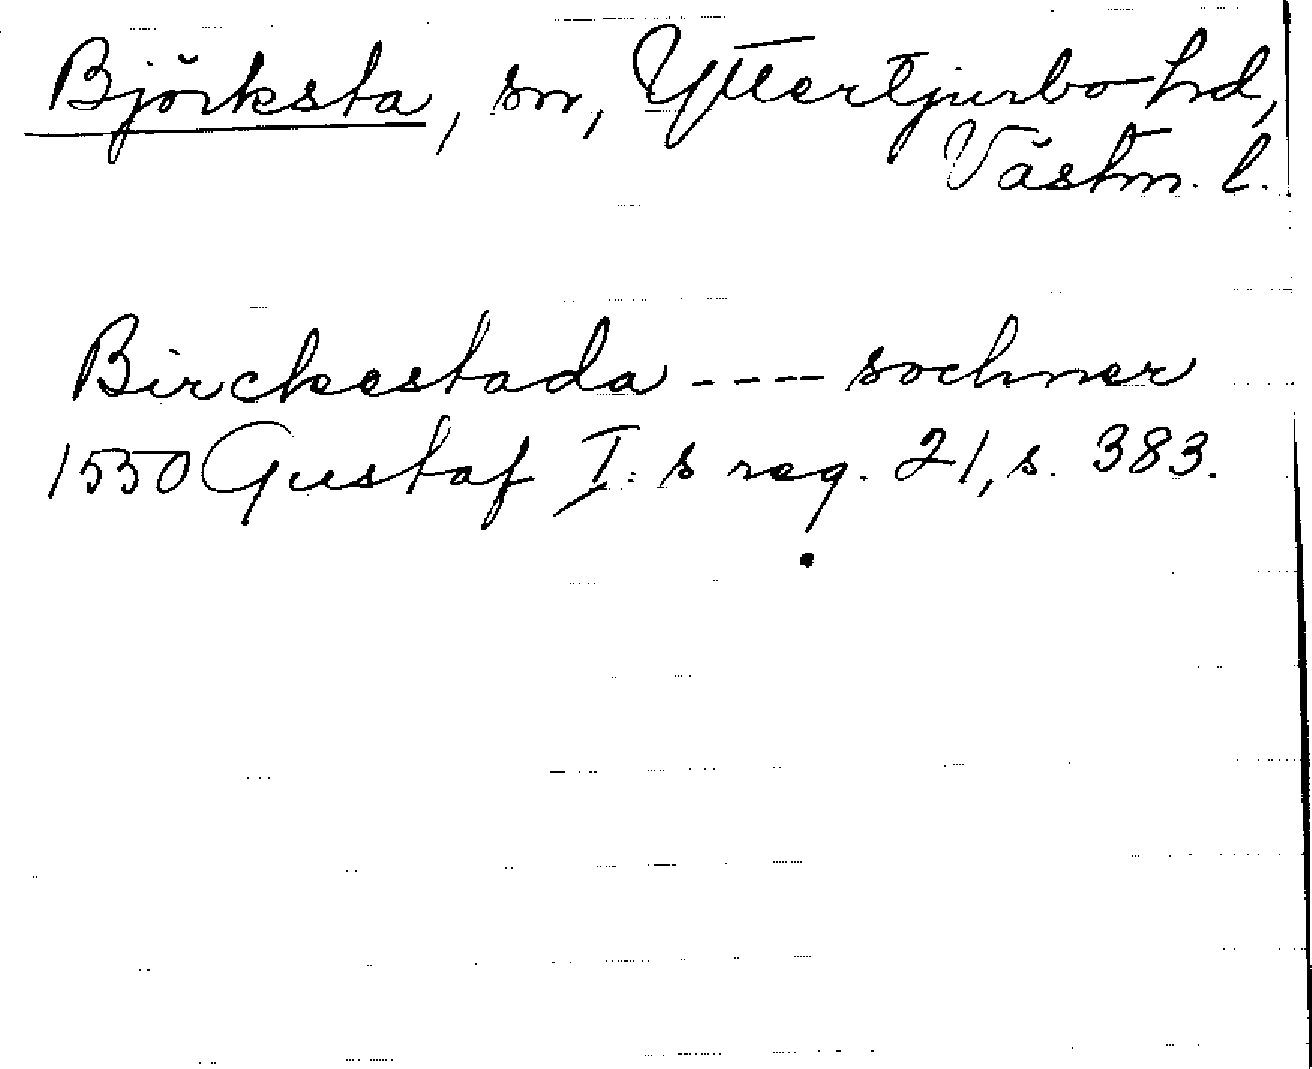 Björksta, sn, Yttertjurbo hd,
Västm. l.
Birckestada ---- sochner
1550 Gustaf I:s reg. 21, s. 383.